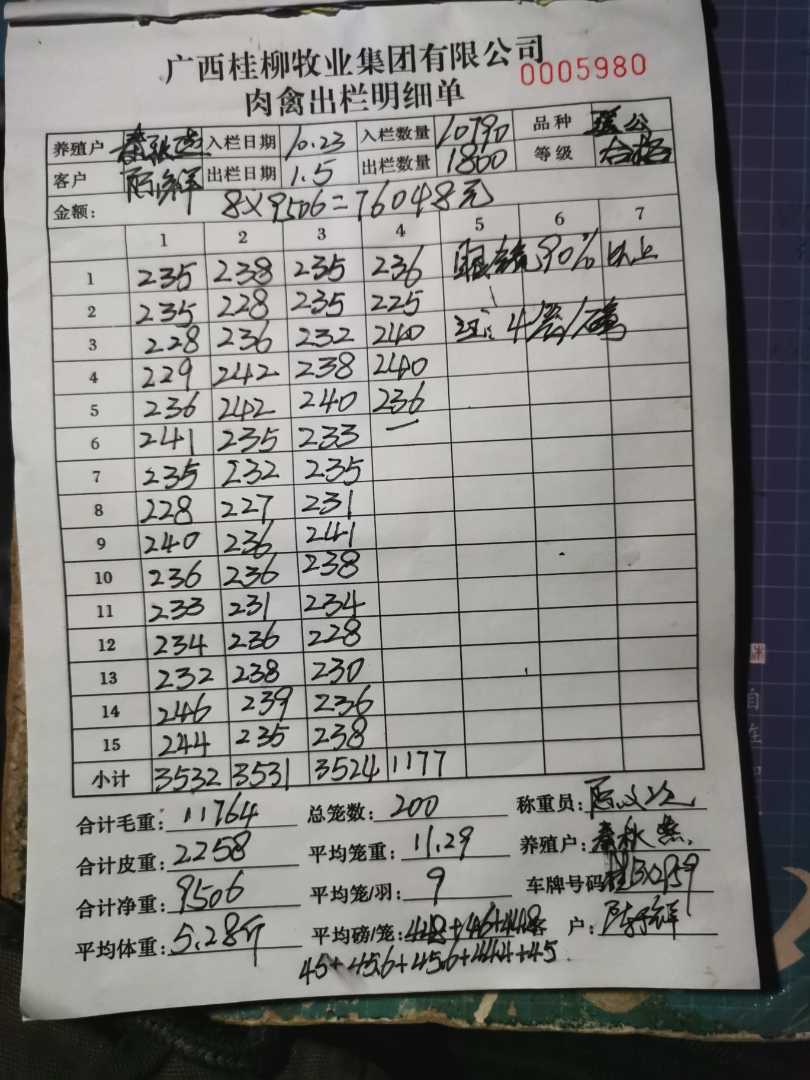 广西桂柳牧业集团有限公司
0005980
肉禽出栏明细单
养殖户 入栏日期 10.23 入栏数量 10790 品种 公
客户 出栏日期 1.5 出栏数量 1800 等级 合格
金额: 8×9506=76048元
1 2 3 4 5 6 7
1 235 238 235 236 90% 以上
2 235 228 235 225
3 228 236 232 240
4 229 242 238 240
5 236 242 240 236
6 241 235 233
7 235 232 235
8 228 227 231
9 240 236 241
10 236 236 238
11 233 231 234
12 234 236 228
13 232 238 230
14 246 239 236
15 244 235 238
小计 3532 3531 3524 1177
合计毛重: 11764 总笼数: 200 称重员:
合计皮重: 2258 平均笼重: 11.29 养殖户:
合计净重: 9506 平均笼/羽: 9 车牌号码
平均体重: 5.28斤 平均磅/笼: 户:
45+45.6+45.6+44.4+45